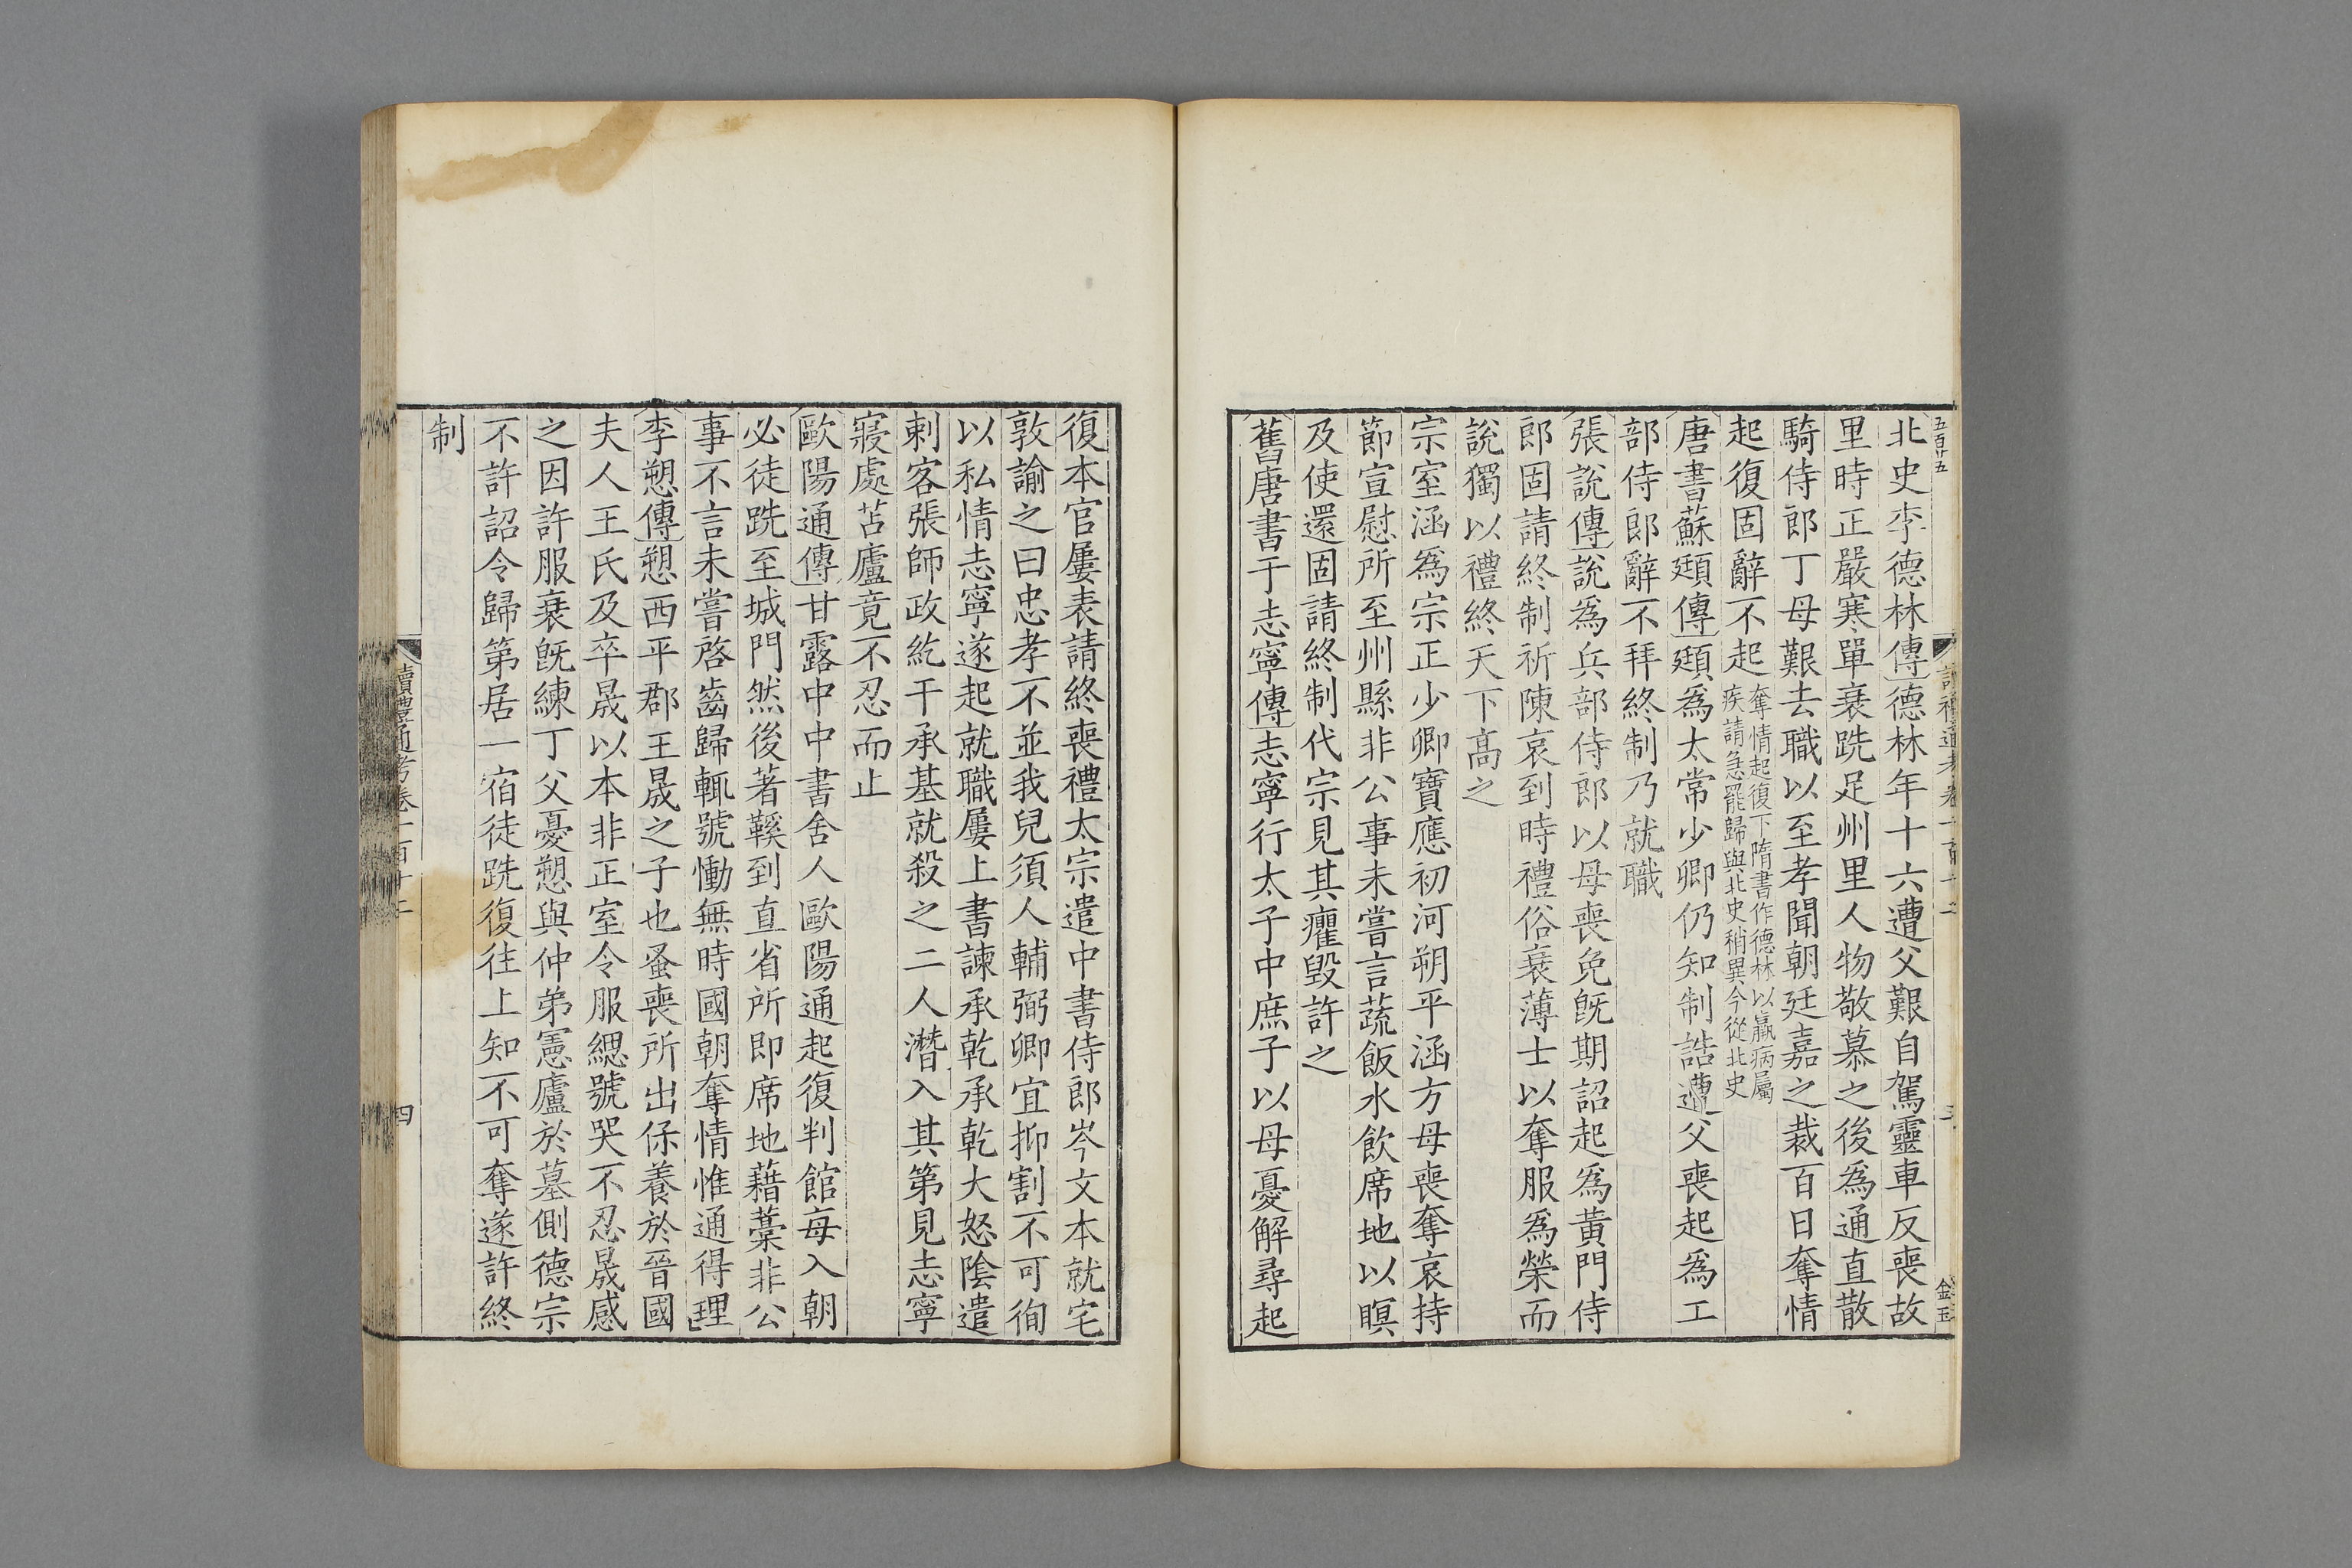 五百廿五
北史李德林傳德林年十六遭父艱自駕靈車反喪故
里時正嚴寒單衰跣足州里人物敬慕之後爲通直散
騎侍郎丁母艱去職以至孝聞朝廷嘉之裁百日奪情
起復固辭不起奪情起復下隋書作德林以羸病屬
疾請急罷歸與北史稍異今從北史
唐書蘇頲傳頲爲太常少卿仍知制誥遭父喪起爲工
部侍郎辭不拜終制乃就職
張說傳說爲兵部侍郎以母喪免旣期詔起爲黃門侍
郎固請終制祈陳哀到時禮俗衰薄士以奪服爲榮而
說獨以禮終天下高之
宗室涵爲宗正少卿寶應初河朔平涵方母喪奪哀持
節宣慰所至州縣非公事未嘗言蔬飯水飲席地以瞑
及使還固請終制代宗見其癯毀許之
舊唐書于志寧傳志寧行太子中庶子以母憂解尋起
復本官屢表請終喪禮太宗遣中書侍郎岑文本就宅
敦諭之曰忠孝不並我兒須人輔弼卿宜抑割不可徇
以私情志寧遂起就職屢上書諫承乾承乾大怒陰遣
刺客張師政紇干承基就殺之二人潛入其第見志寧
寢處苫廬竟不忍而止
歐陽通傳甘露中中書舍人歐陽通起復判館每入朝
必徒跣至城門然後著鞵到直省所即席地藉藁非公
事不言未嘗啓齒歸輒號慟無時國朝奪情惟通得理
李愬傳愬西平郡王晟之子也蚤喪所出保養於晉國
夫人王氏及卒晟以本非正室令服緦號哭不忍晟感
之因許服衰旣練丁父憂愬與仲弟憲廬於墓側德宗
不許詔令歸第居一宿徒跣復往上知不可奪遂許終
制
讀禮通考卷一百十二
四